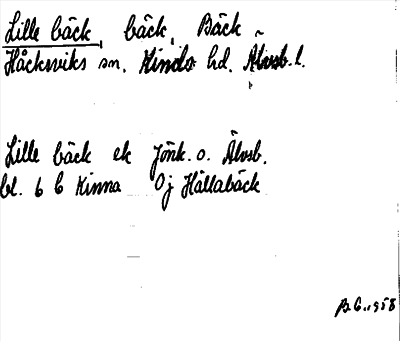 Lille bäck, bäck, Bäck ~
Håcksviks sn. Kinds hd. Älvsb. l.
Lille bäck ek Jönk. o. Älvsb.
bl. 6 b Kinna Oj Hållabäck
1958